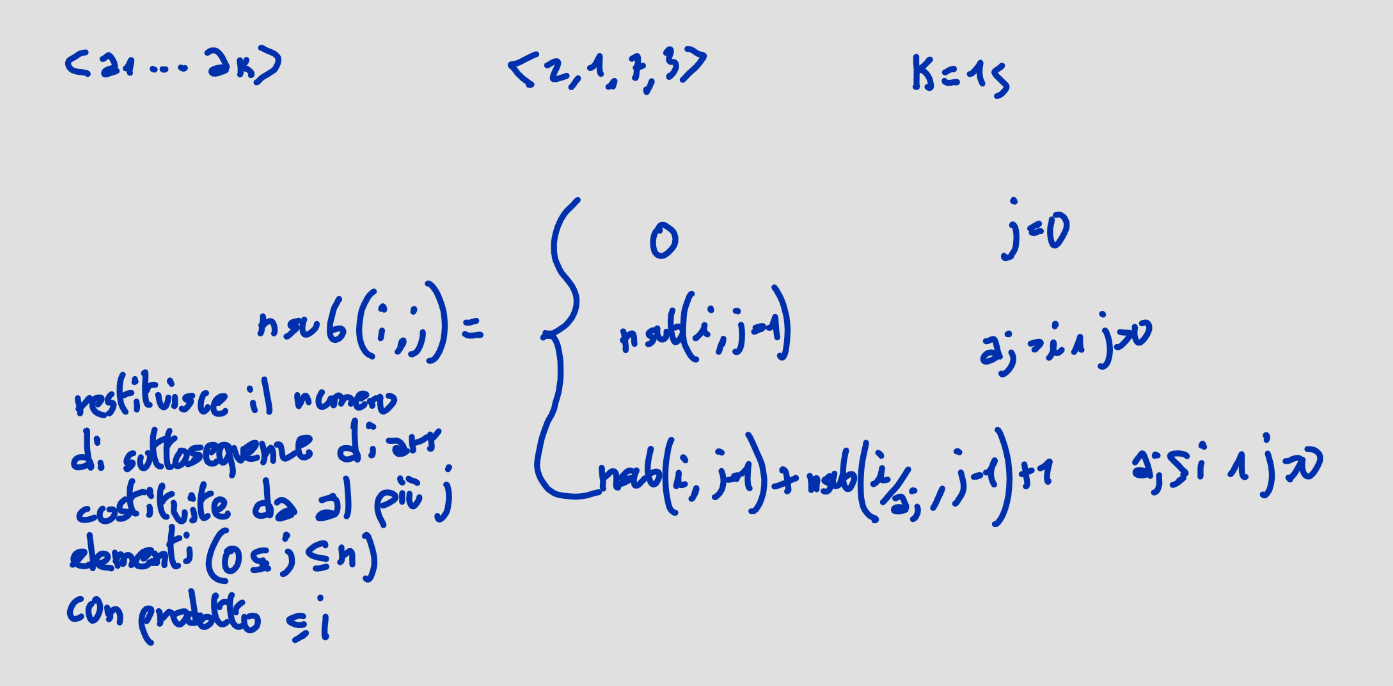 <a1 ... aK> <2,1,7,3> K=15
0 j=0
nsub(i,j)= nsub(i,j-1) aj>i ∧ j>0
nsub(i,j-1)+nsub(i/aj,j-1)+1 aj≤i ∧ j>0
restituisce il numero
di sottosequenze di arr
costituite da al più j
elementi (0≤j≤n)
con prodotto ≤i